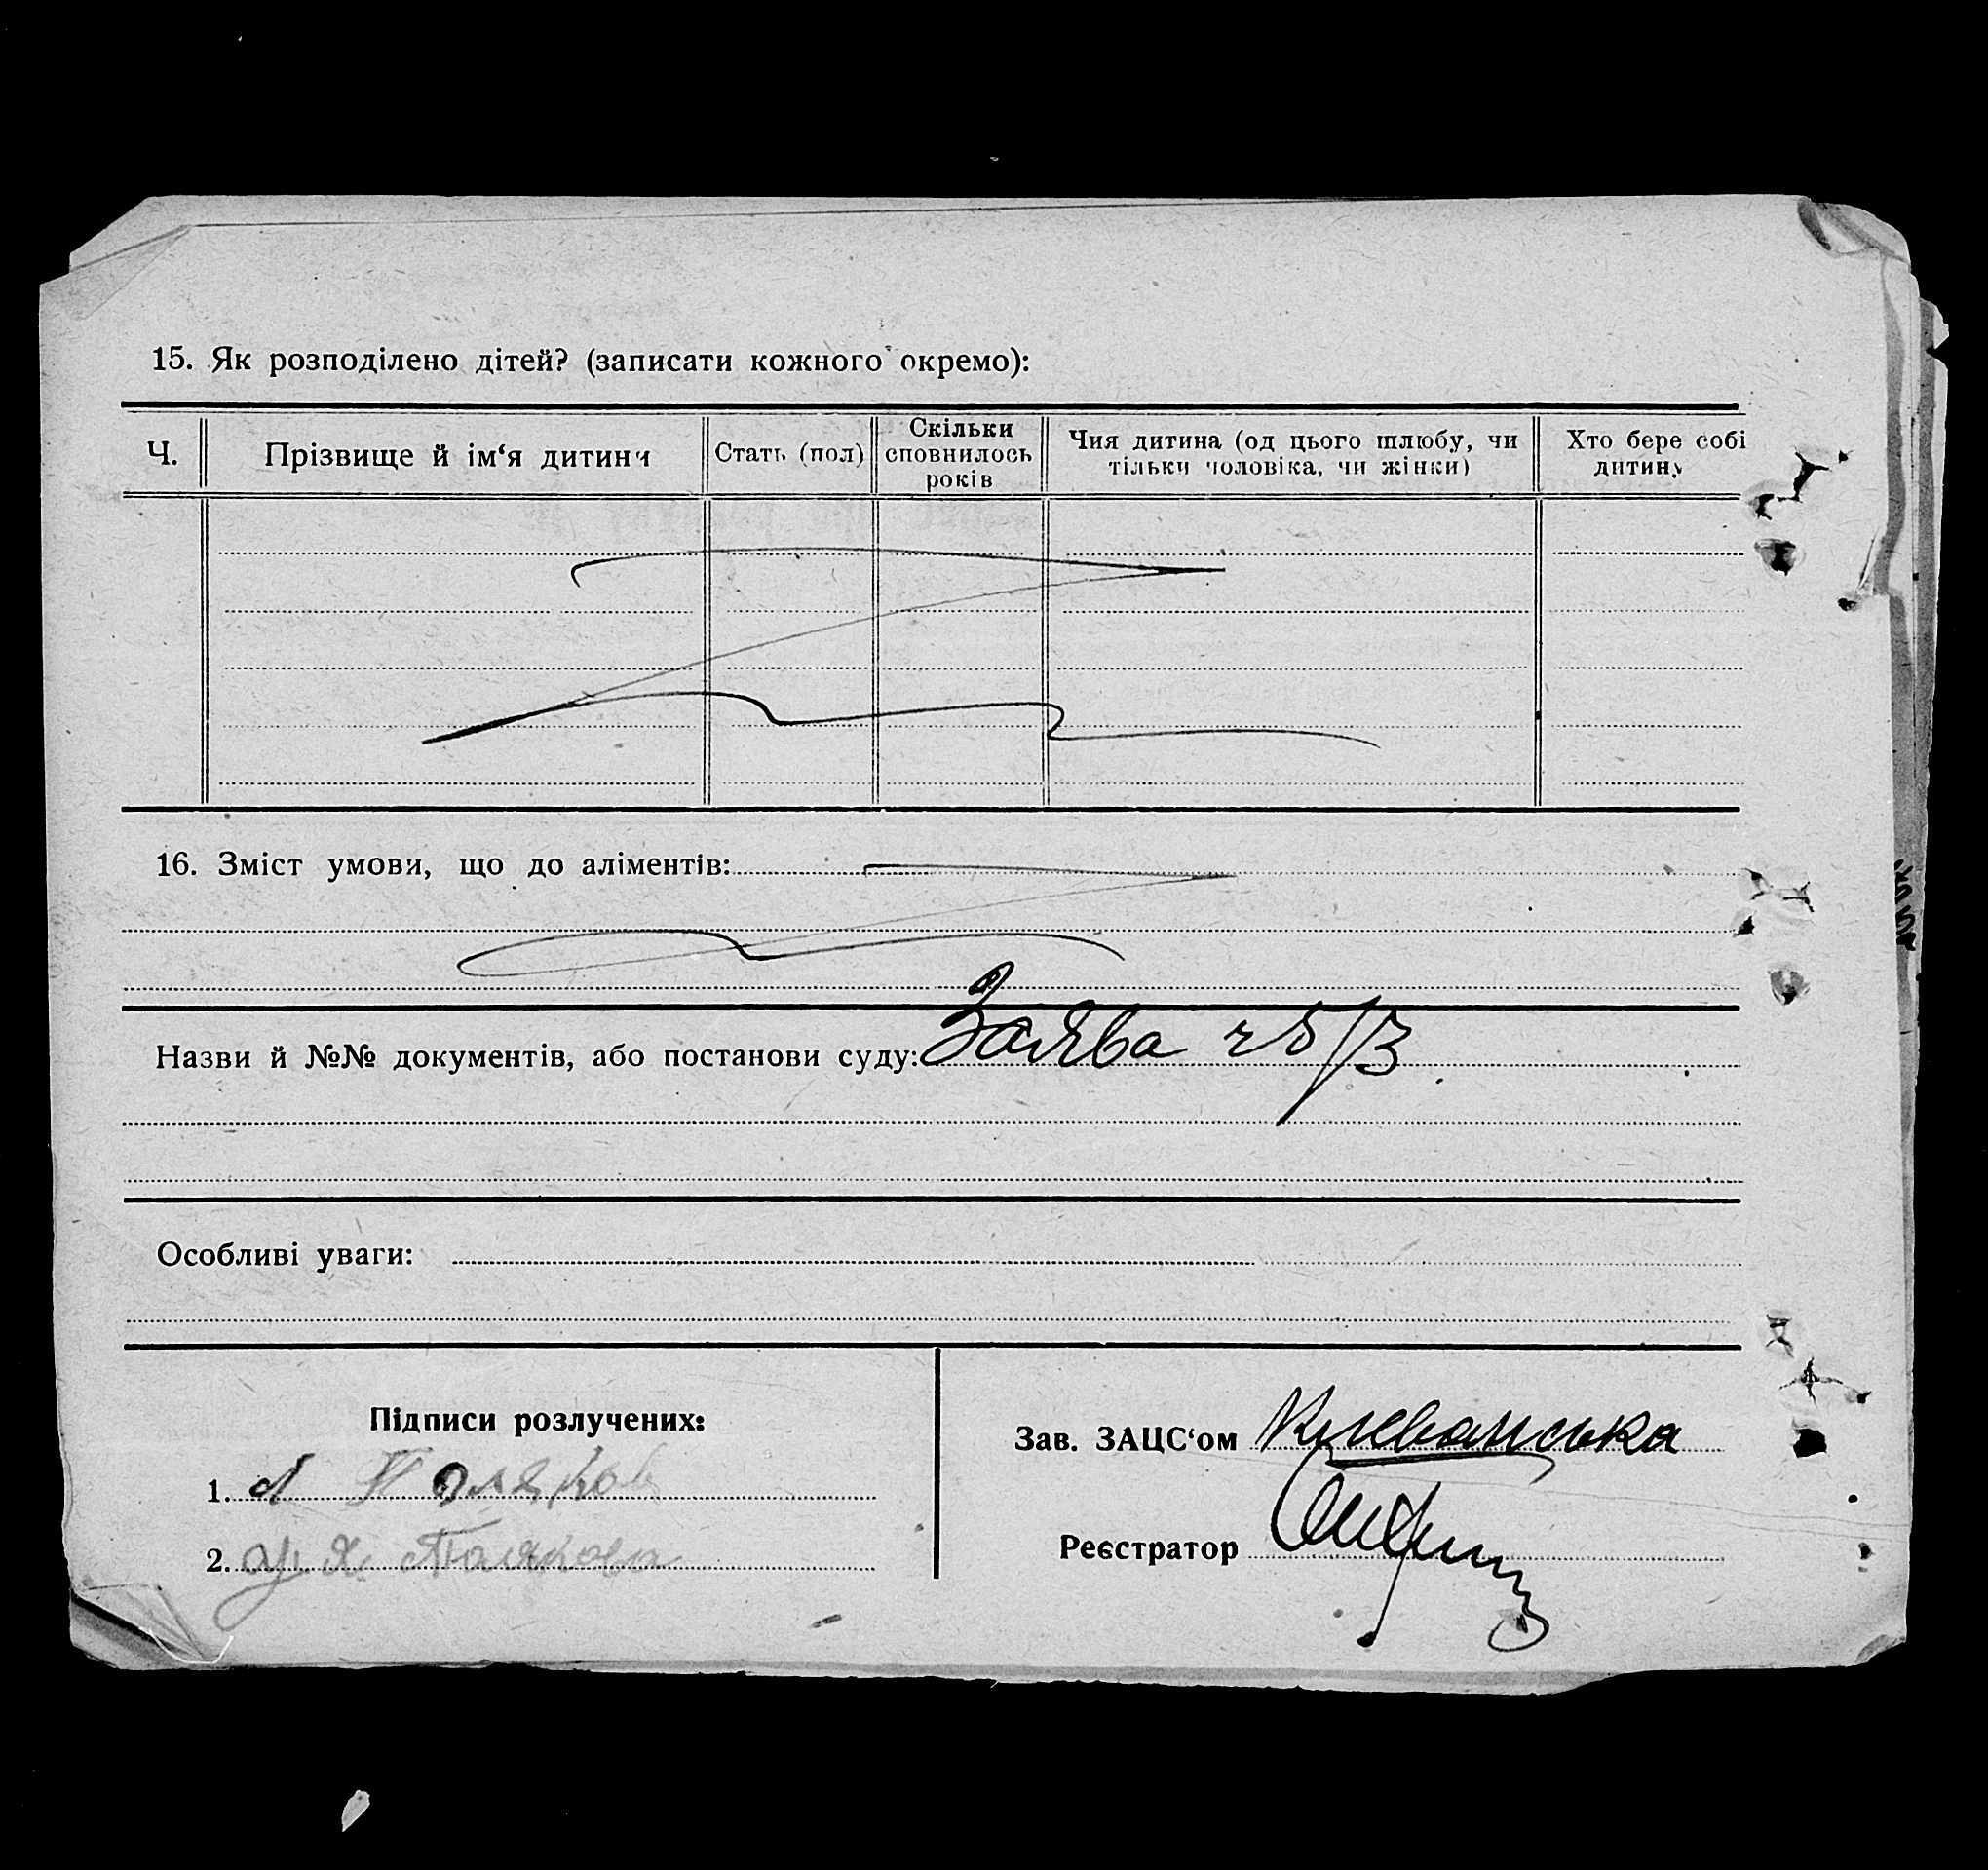 15. Як розподілено дітей? (записати кожного окремо):
Ч.
Прізвище й ім‘я дитини
Стать (пол)
Скільки
сповнилось
років
Чия дитина (од цього шлюбу, чи
тільки чоловіка, чи жінки)
Хто бере собі
дитину
16. Зміст умови, що до аліментів:
Назви й №№ документів, або постанови суду: Заява
Особливі уваги:
Підписи розлучених:
1. Поляков
2. Полякова
Зав. ЗАЦС‘ом
Реєстратор